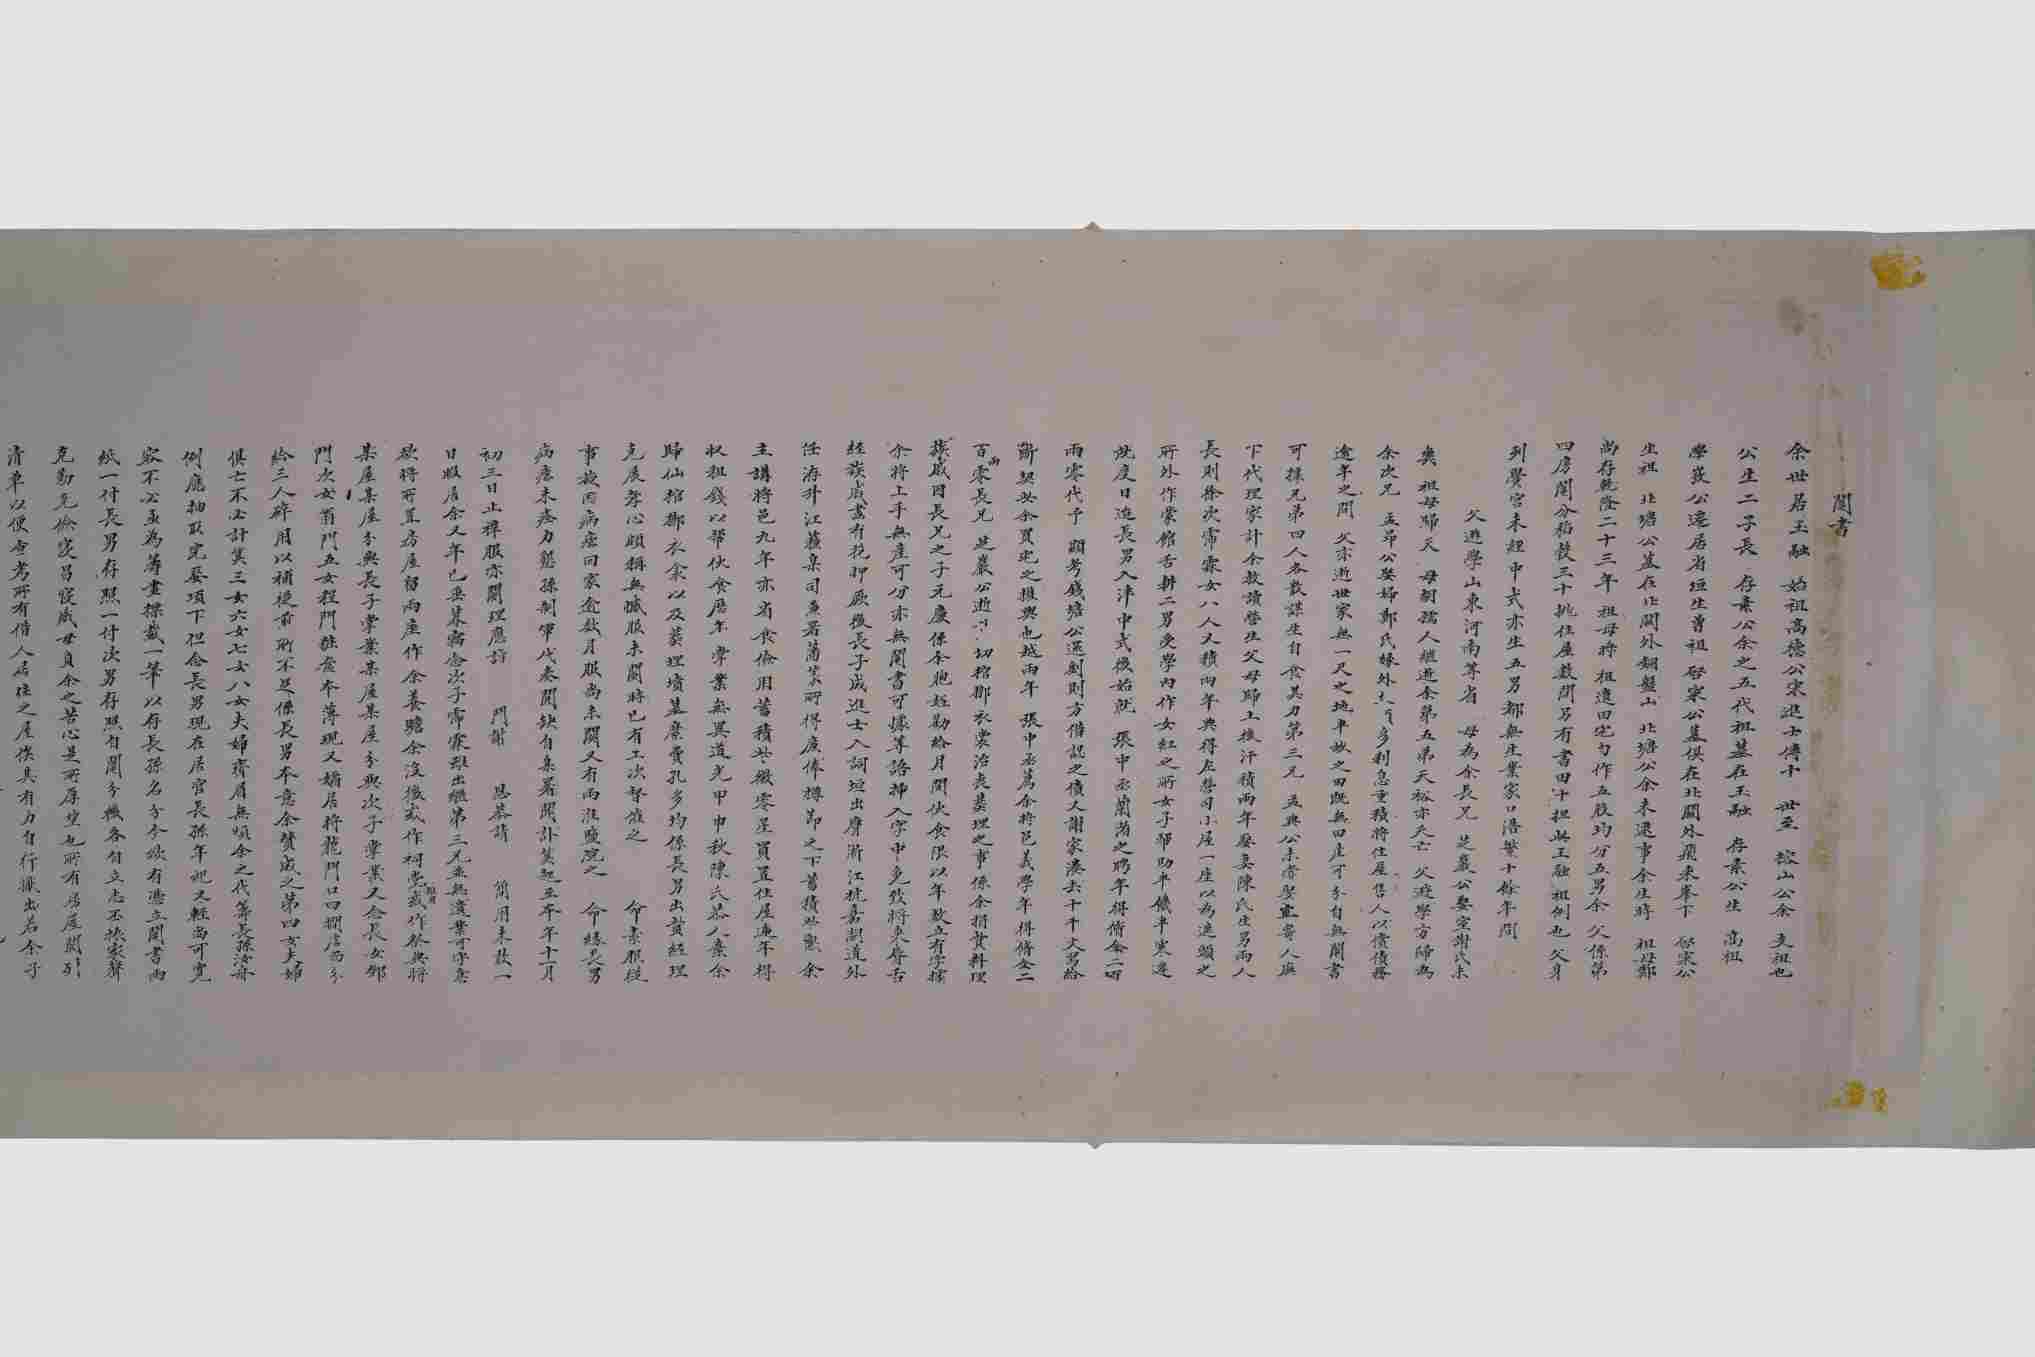 鬮書
余世居玉融 始祖高德公宋進士傳十 世至 榕山公余 支祖也
公生二子長 存素公余之五代祖墓在玉融 存素公生 高祖
學茲公遷居省垣生曾祖 啓宋公墓俱在北關外飛來峯下 啓宋公
生祖 北塘公墓在北關外蝴盤山 北塘公余未逮事余生時 祖母鄭
尚存乾隆二十三年 祖母將 祖遺田宅勻作五股均分五男余 父係第
四房鬮分租穀三十挑住屋數間另有書田十担與玉融 祖例也 父身
列黌宮未經中式亦生五男都無生業家口浩繁十餘年間
父遊學山東河南等省 母為余長兄 芝巖公娶室謝氏未
奠 祖母歸天 母胡孺人繼逝余第五弟天裕亦夭亡 父遊學方歸為
余次兄 孟昂公娶婦鄭氏緣外 多利息重積將住屋售人以償債務
逾年之間 父亦逝世家無一尺之地半畝之田既無田產可分自無鬮書
可據兄弟四人各散謀生自食其力第三兄 孟典公未壽聖寄人廡
下代理家計余教讀營生父母歸土後汗積兩年娶妻陳氏生男兩人
長則徐次霈霖女八人又積兩年典得左營司小屋一座以為進頭之
所外作蒙館舌耕二男受學內作女紅之所女子帮助半饑半寒遞
挽度日迨長男入泮中式後始就 張中丞蘭渚之聘年得脩金二百
兩零代予 顯考錢塘公逋剷則方借設之債人謝家湊去十千文另給
斷契此余買宅之權輿也越兩年 張中丞薦余將邑義學年得脩金二
百兩零長兄 芝巖公逝 切棺槨衣衾治喪葬理之事係余捐貲料理
族戚因長兄之子元慶係余胞姪勸給月間伙食限以年數立有字據
余將上手無產可分亦無鬮書可據等語揷入字中免致將來唇舌
經族戚畫有花押厥後長子成進士入詞垣出膺浙江杭嘉湖道外
任洊升江蘇臬司兼署藩篆所得廉俸撙節之下蓄積些製 余
主講將邑九年亦省食儉用蓄積些微零星買置住屋連年得
收租錢以帮伙食歷年掌業無異道光甲申秋陳氏恭人棄余
歸仙棺槨衣衾以及葬理墳墓糜費孔多均係長男出貲經理
克展孝心頗稱無憾服未闋時已有工次督催之 命素服從
事嗣因病痊回家逾數月服尚未闋又有兩淮鹽院之 命緣長男
病痊未痊力懇孫制軍代奏開缺自京署聞訃筭起至本年十一月
初三日止禫服亦闋理應詣 門謝 恩恭請 簡用未敢一
日暇居余又年已垂暮竊念次子霈霖雖出繼第三兄並無遺業可守意
欲將所置房屋留兩座作余養贍余沒後或作祠堂或作祭典將
某屋某屋分與長子掌業某屋某屋分與次子掌業又念長女鄭
門次女翁門五女程門粧奩本薄現又孀居將龍門口四椆店房分
給三人碎用以補從前所不足係長男本意余贊成之第四女夫婦
俱亡不必計筭三女六女七女八女夫婦齊眉無煩余之代籌長孫汝舟
例應抽取完娶項下但念長男現在居官長孫年紀又輕尚可寬
容不必亟為籌畫探載一筆以存長孫名分今欲有憑立鬮書兩
紙一付長男存照一付次男存照自鬮分後各自立志丕振家聲
克勤克儉寖昌寖熾毋負余之苦心是所厚望也所有房屋開列
清單以便查考所有借人居住之屋俟其有力自行搬出若余子